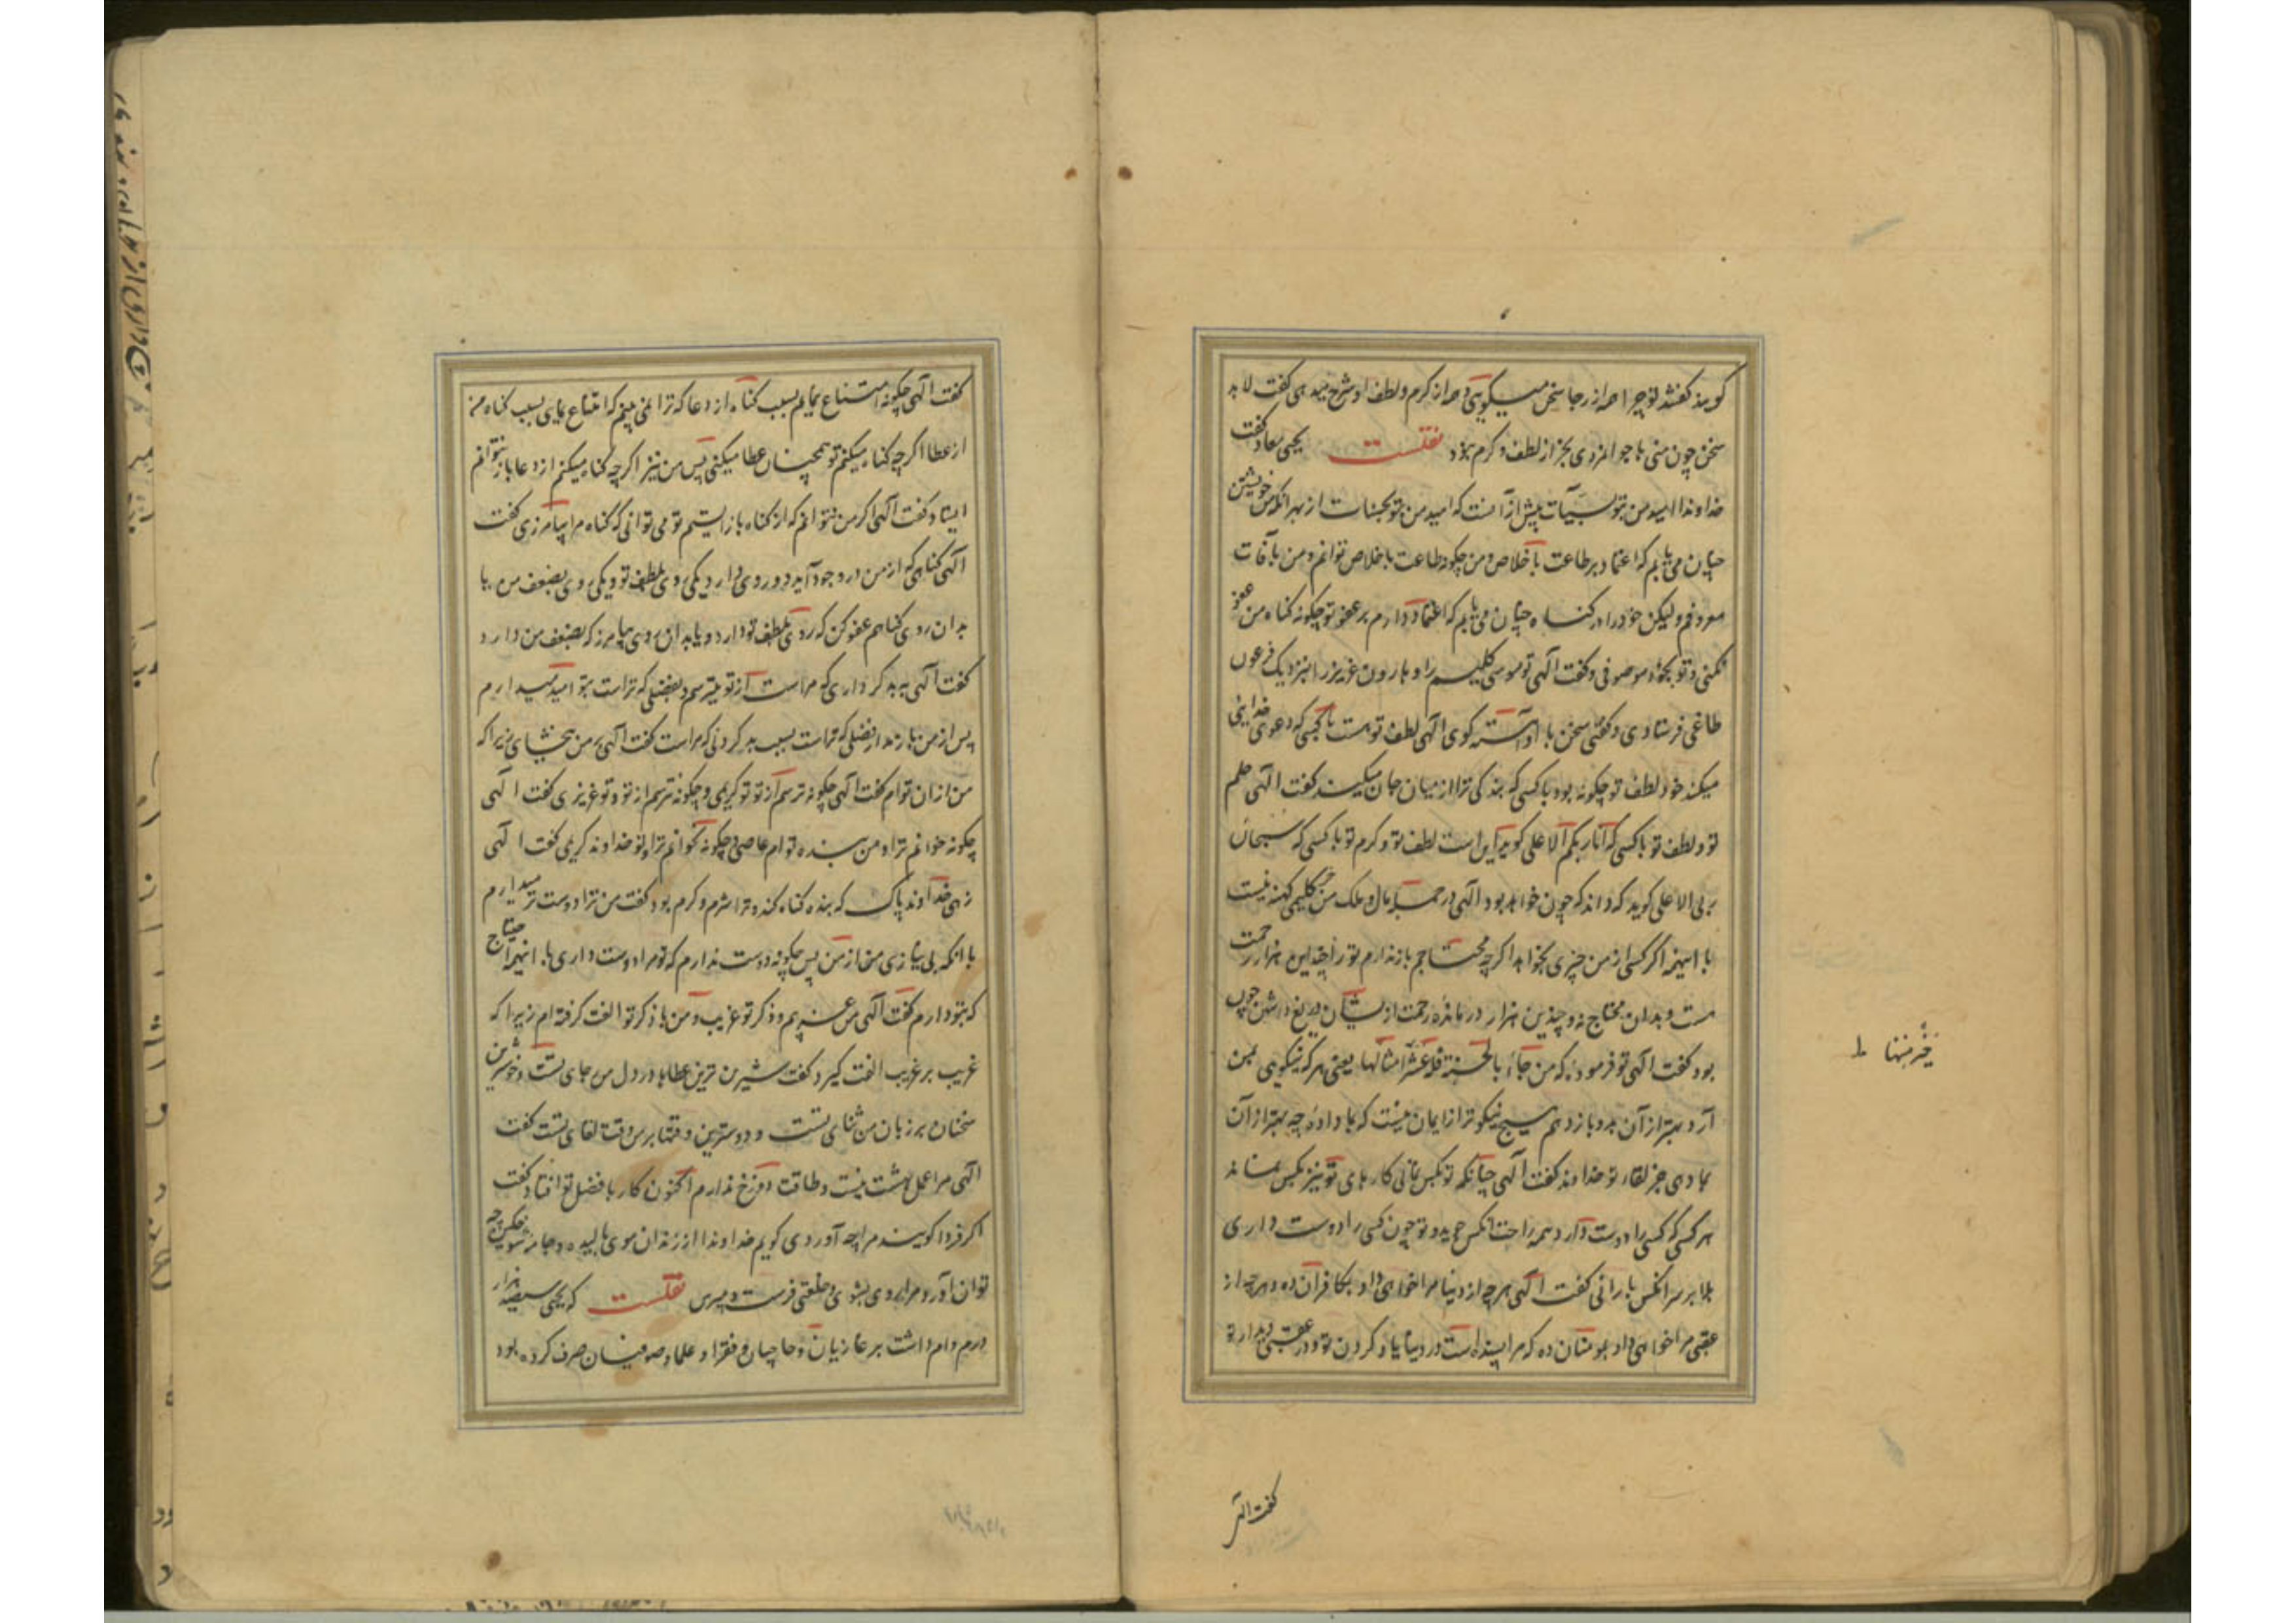 گویند گفتند تو چرا همه از رجا سخن میگویی و همه از کرم و لطف او شرح میدهی گفت لابد
سخن چون منی با جوانمردی بجز از لطف و کرم نبود نقلست یحیی معاد گفت
خداوندا امید من بتو بسیآت بیش از آنست که امید من بتو بحسنات از بهر انکه من خویشتن
چنان می یابم که اعتماد بر طاعت باخلاص و من چگونه طاعت باخلاص توانم و من بآفات
معروفم ولیکن خود را در گناه چنان می یابم که اعتماد دارم بر عفو تو چگونه گناه من عفو
نکنی و تو بجود موصوفی و گفت الهی تو موسی کلیم را و هارون عزیز را بنزدیک فرعون
طاغی فرستادی و گفتی سخن با او آهسته گوی الهی لطف تو هست با کسی که دعوی خدایی
میکند خود لطف تو چگونه بود با کسی که بندگی ترا از میان جان میکند گفت الهی حلم
تو و لطف تو با کسی که انا ربکم الاعلی گوید این است لطف تو و کرم تو با کسی که سبحان
ربی الاعلی گوید که داند که چون خواهد بود الهی در جمله مال و ملک من جز گلیمی کهنه نیست
با اینهمه اگر کسی از من چیزی بخواهد اگرچه محتاجم باز ندارم تو را چندین هزار رحمت
هست و بدان محتاج نه و چندین هزار درمانده رحمت از ایشان دریغ داشتن چون
بود گفت الهی تو فرموده که من جاء بالحسنة فله عشر امثالها یعنی هر که نیکویی بمن
آرد بهتر از آن بدو باز دهم هیچ نیکوتر از ایمان نیست که بما داده چه بهتر از آن
بما دهی جز لقاء تو خداوند گفت الهی چنانکه تو بکس نمانی کارهای تو نیز بکس نماند
هر کسی که کسی را دوست دارد همه راحت انکس جوید و تو چون کسی را دوست داری
بلا بر سر انکس بارانی گفت الهی هرچه از دنیا مرا خواهی داد بکافران ده و هرچه از
عقبی مرا خواهی داد بمومنان ده که مرا بسنده است در دنیا یاد کردن تو و در عقبی دیدار تو
خیر منها ط
گفت الهی
گفت الهی چگونه امتناع نمایم بسبب گناه از دعا که ترا نمی بینم که امتناع نمایی بسبب گناه من
از عطا اگرچه گناه میکنم تو همچنان عطا میکنی پس من نیز اگرچه گناه میکنم از دعا باز نتوانم
ایستاد گفت الهی اگر من نتوانم که از گناه باز ایستم تو می توانی که گناه مرا بیامرزی گفت
الهی گناهی که از من در وجود آید دو روی دارد یکی روی بلطف تو و یکی روی بضعف من یا
بدان روی گناهم عفو کن که روی بلطف تو دارد و یا بدان روی بیامرز که بضعف من دارد
گفت الهی به بدکرداری که مراست از تو میترسم و بفضلی که تراست بتو امید میدارم
پس از من باز مدار فضلی که تراست بسبب بدکردنی که مراست گفت الهی بر من ببخشای زیرا که
من از آن توام گفت الهی چگونه ترسم از تو و تو کریمی و چگونه نترسم از تو و تو عزیزی گفت الهی
چگونه خوانم ترا و من بنده توام عاصی و چگونه نخوانم ترا و تو خداوند کریمی گفت الهی
زهی خداوند پاک که بنده گناه کند و ترا شرم و کرم بود گفت من ترا دوست تر میدارم
با انکه بی نیازی از من پس چگونه دوست ندارم که تو مرا دوست داری با اینهمه احتیاج
که بتو دارم گفت الهی من غریبم و ذکر تو غریب و من با ذکر تو الفت گرفته ام زیرا که
غریب بر غریب الفت گیرد گفت شیرین ترین عطاها در دل من رجای تست و خوشترین
سخنان بر زبان من ثنای تست و دوسترین وقتها بر من وقت لقای تست گفت
الهی مرا عمل بهشت نیست و طاقت دوزخ ندارم اکنون کار با فضل تو افتاد گفت
اگر فردا گویند مرا چه آوردی گویم خداوندا از زندان موی بالیده و جامه شوخگین چه
توان آورد مرا بشوی و خلعتی فرست و مپرس نقلست که یحیی صد هزار
درم وام داشت بر غازیان و حاجیان و فقرا و علما و صوفیان صرف کرده بود